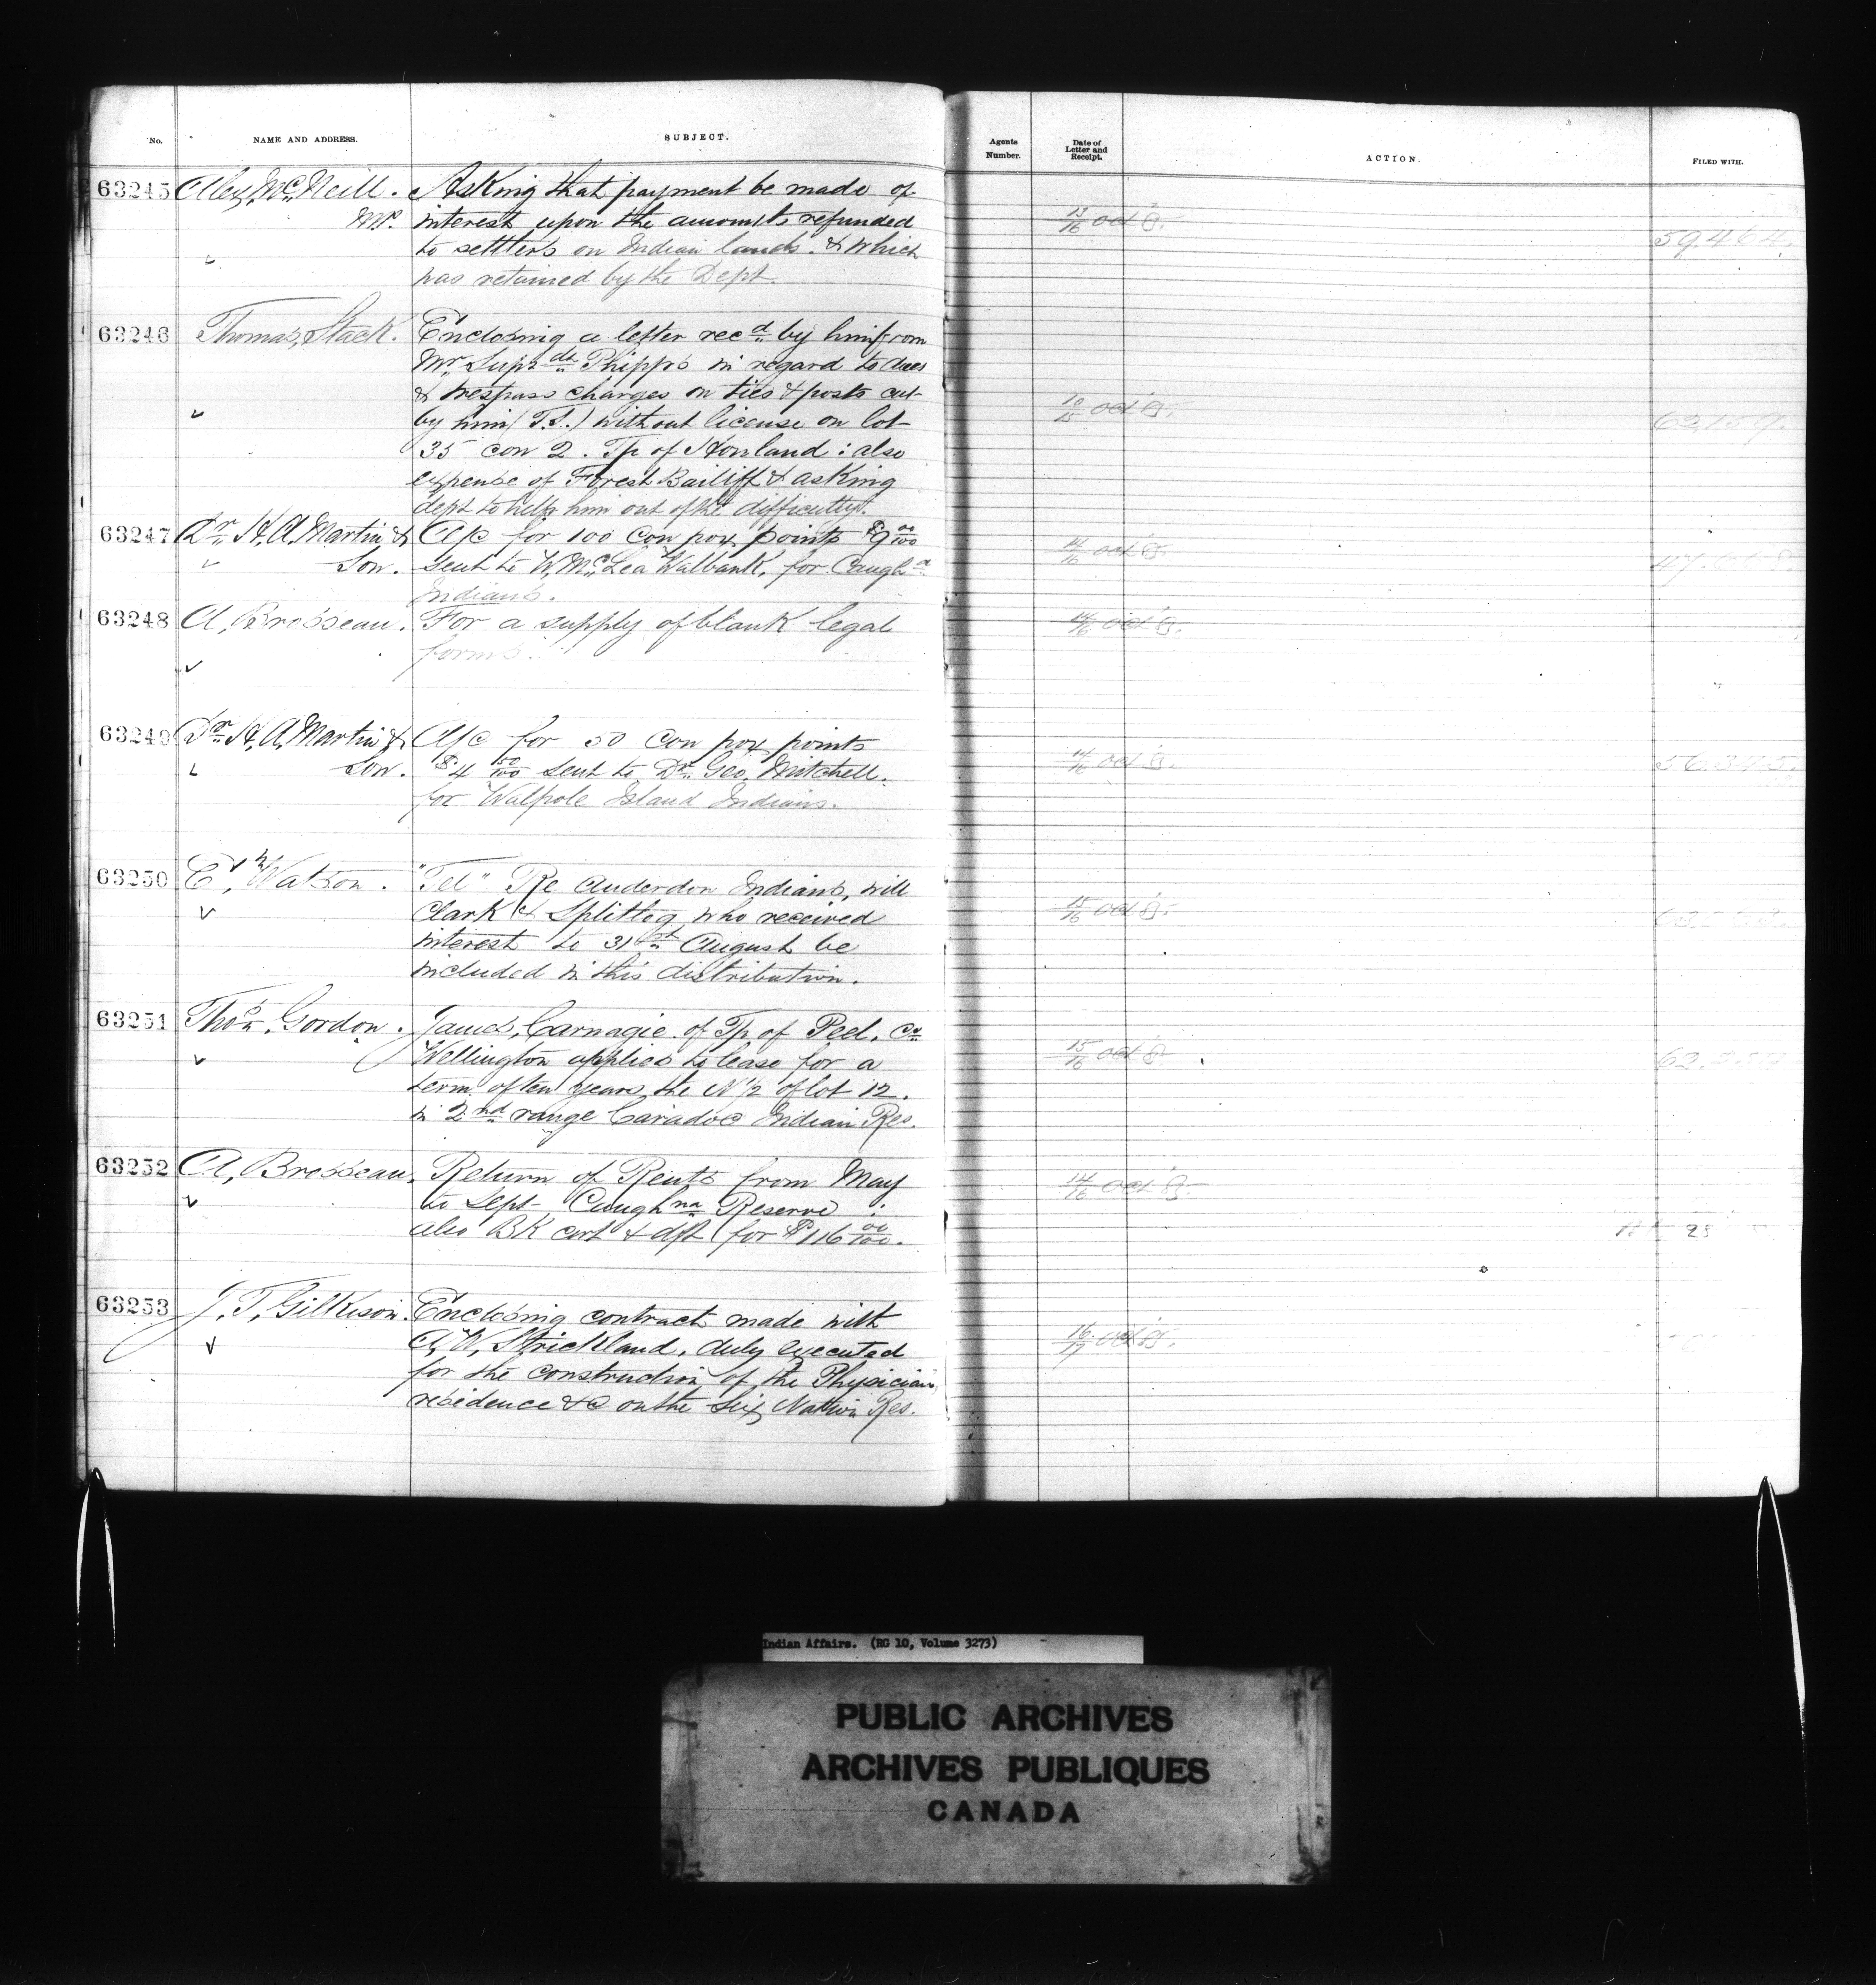 No. NAME AND ADDRESS. SUBJECT. Agents Number. Date of Letter and Receipt. ACTION. FILED WITH.
63245 Alex, McNeill. Asking that payment be made of
M.P. interest upon the amounts refunded 13/16 Oct
to settlers on Indian lands. & which 59.464.
was retained by the Dept.
63246 Thomas, Stack. Enclosing a letter recd by him from
Mr Supt Phipps in regard to dues
& trespass charges on ties & posts cut 10/15 Oct
by him (T.S.) without license on lot 62,159.
35 con 2. Tp of Howland: also
expense of Forest Bailiff & asking
dept to help him out of the difficulty.
63247 Dr H, A, Martin & A/c for 100 Cow pox points $9 00/100 14/16 Oct
Son. sent to W, McLea Walbank, for Caughna
Indians.
63248 A, Brosseau. For a supply of blank legal 14/16 Oct
forms.
63249 Dr H, A, Martin & A/c for 50 Cow pox points
Son. $4 50/100 sent to Dr Geo. Mitchell. 14/16 Oct 56.345.
for Walpole Island Indians.
63250 E, Watson. "Tel" Re Anderdon Indians, will
Clark & Splitlog who received 15/16 Oct
interest to 31st August be
included in this distribution.
63251 Thos. Gordon. James, Carnagie. of Tp. of Peel, Co
Wellington applies to lease for a 15/16 Oct
term of ten years, the N 1/2 of lot 12.
in 2nd range Caradoc Indian Res.
63252 A, Brosseau, Return of Rents from May 14/16 Oct
to Sept- Caughna Reserve :
also BK cert & dft for $116 00/100.
63253 J, T, Gilkison. Enclosing contract made with
A, W, Strickland. duly executed 16/17 Oct
for the construction of the Physician
residence &c on the Six Nation Res.
Indian Affairs. (RG 10, Volume 3273)
PUBLIC ARCHIVES
ARCHIVES PUBLIQUES
CANADA